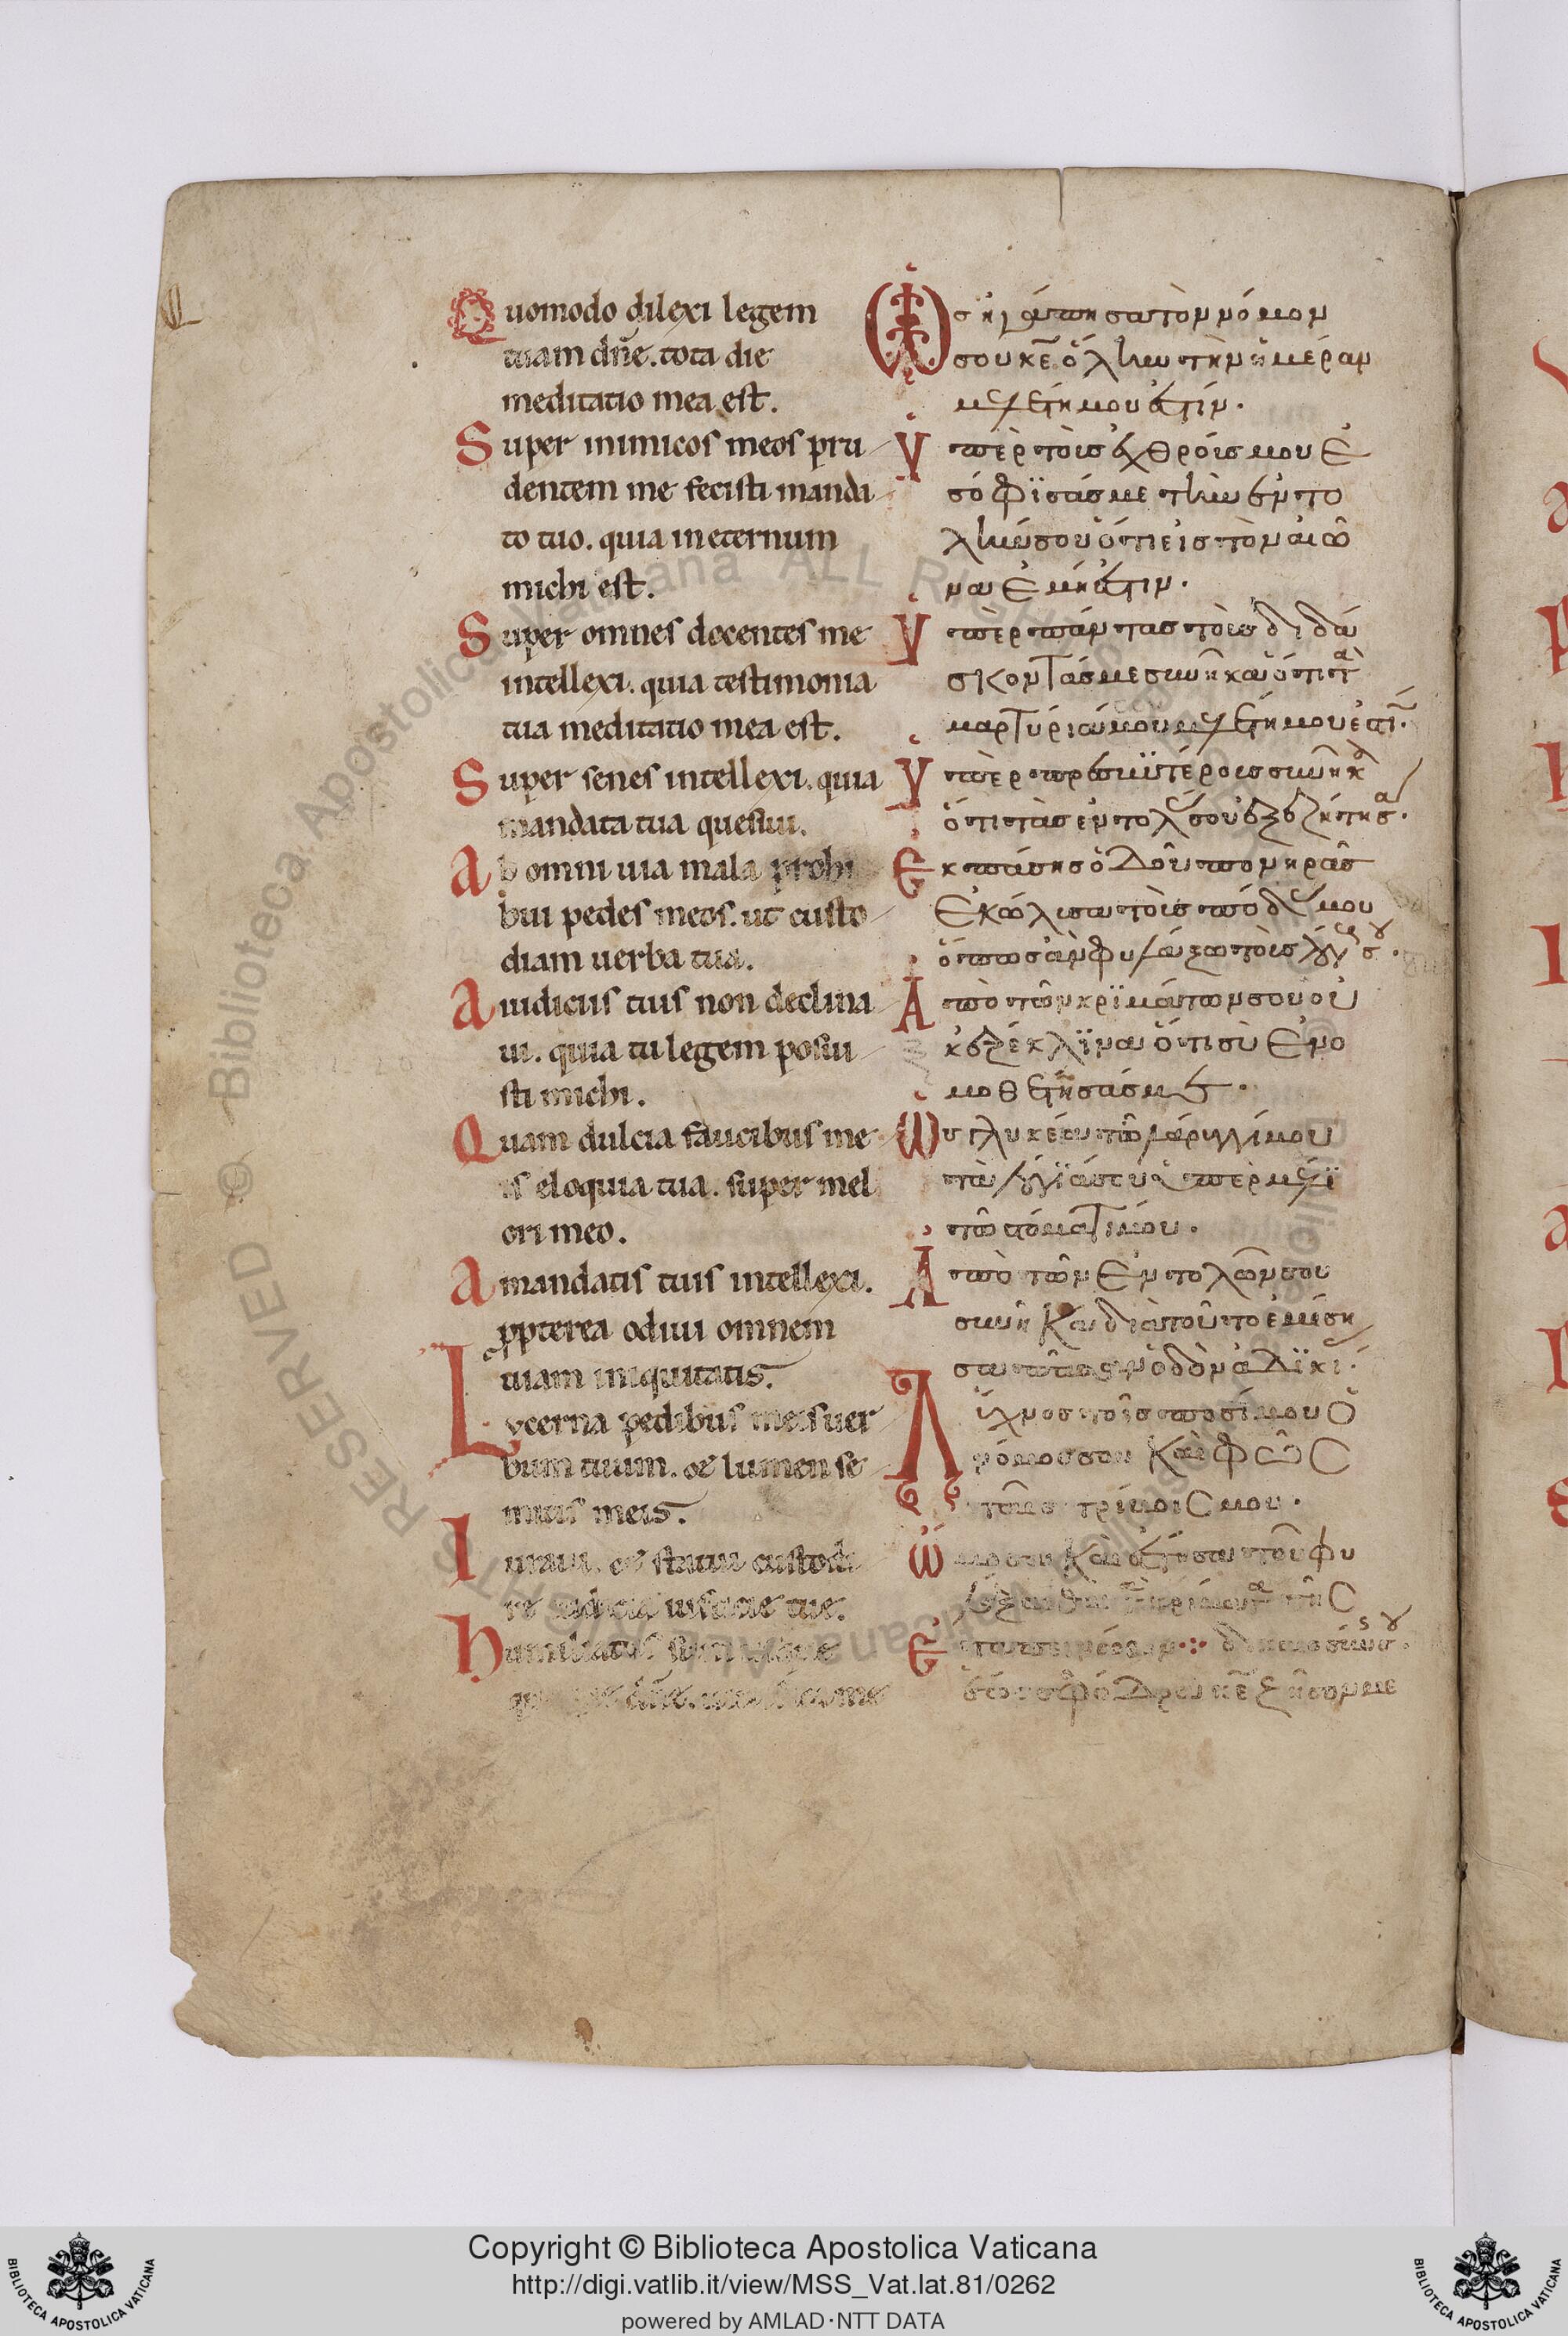 Quomodo dilexi legem
tuam dñe. tota die
meditatio mea est.
Super inimicos meos pru
dentem me fecisti manda
to tuo. quia in eternum
michi est.
Super omnes docentes me
intellexi. quia testimonia
tua meditatio mea est.
Super senes intellexi. quia
mandata tua quesiui.
Ab omni uia mala prohi
bui pedes meos. ut custo
diam uerba tua.
A iudiciis tuis non declina
ui. quia tu legem posui
sti michi.
Quam dulcia faucibus me
is eloquia tua. super mel
ori meo.
A mandatis tuis intellexi.
ppterea odiui omnem
uiam iniquitatis.
Lucerna pedibus meis uer
bum tuum. et lumen se
mitis meis.
Iuraui. et statui custodi
re iudicia iusticie tue.
Humiliatus sum usque
dñe.
Ὡσ ἠγάπησα τὸν νόμον
σου κε̄ ὅλην τὴν ἡμέραν
μελέτη μου ἐστίν.
Ὑπὲρ τοὺσ ἐχθρούσ μου ἐ
σόφϊσάσ με τὴν ἐντο
λήν σου ὅτι εἰσ τὸν αἰῶ
να ἐμή ἐστιν.
Ὑπὲρ πάντασ τοὺσ διδά
σκοντάσ με συνῆκα ὅτι τ
μαρτύριά σου μελέτη μου ἐστ.
Ὑπὲρ πρεσβϋτέρουσ συνῆκ
ὅτι τὰσ ἐντολάσ σου ἐξεζήτησ.
Ἐκ πάσησ ὁδοῦ πονηρᾶσ
ἐκώλυσα τοὺσ πόδ μου
ὅπωσ ἂν φυλάξω τοὺσ λόγ σ.
Ἀπὸ τῶν κρϊμάτων σου οὐ
κ ἐξέκλϊνα ὅτι σὺ ἐνο
μοθέτησάσ με.
Ὡσ γλυκέα τῶ λάρυγγί μου
τὰ λόγϊά σου ὑπὲρ μέλϊ
τῶ στόματί μου.
Ἀπὸ τῶν ἐντολῶν σου
συνῆκα διὰ τοῦτο ἐμίση
σα πᾶσαν ὁδὸν ἀδϊκί.
Λύχνοσ τοῖσ ποσί μου ὁ
νόμοσ σου καὶ φῶσ
ταῖσ τρίβοισ μου.
Ὤμοσα καὶ ἔστησα τοῦ φυ
λάξασθαι
Ἐταπεινώθην
ἕωσ σφόδρα κε̄ ζῆσόν με
Copyright © Biblioteca Apostolica Vaticana
http://digi.vatlib.it/view/MSS_Vat.lat.81/0262
powered by AMLAD·NTT DATA